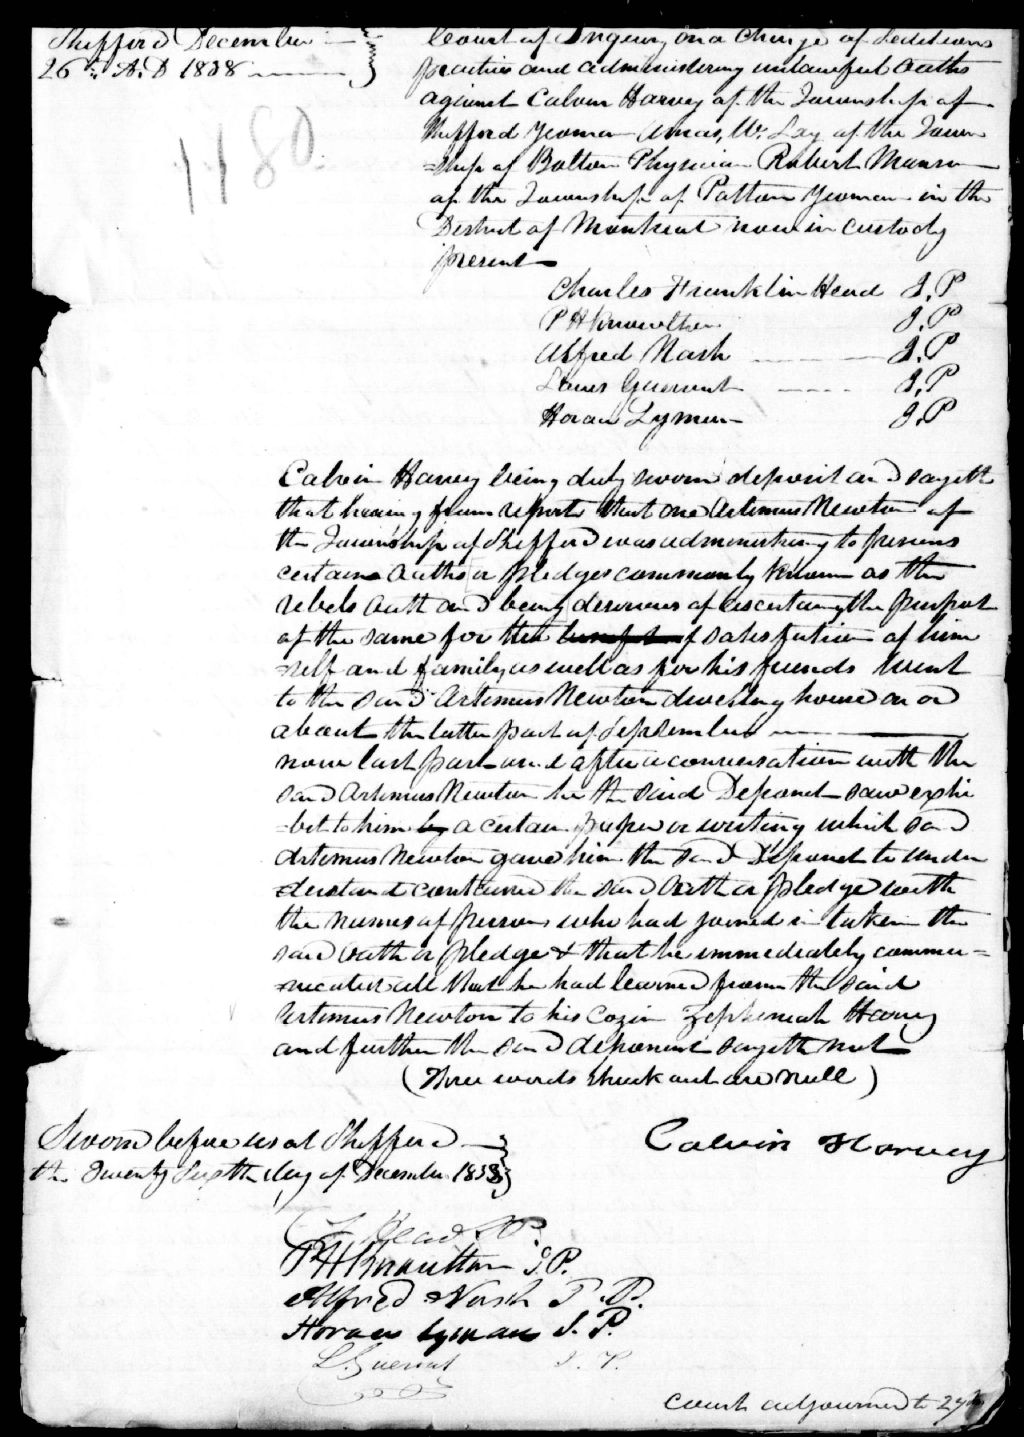 Shefford December
26th A.D 1838
1180
Court of Inquiry on a Charge of Seditious
practices and administering unlawful Oaths
against Calvin Harvey of the Township of
Shefford Yeoman Amas W. Lay of the Town
=ship of Bolton Physician Robert Manson
of the Township of Potton Yeoman in the
District of Montreal now in custody
present
Charles Franklin Head J.P
P H Knowlton J.P
Alfred Nash J.P
J.P
Horace Lyman J.P
Calvin Harvey being duly sworn deposit and sayeth
that hearing from report that one Artimus Newton of
the Township of Shefford was administring to persons
certain Oaths or pledges commonly known as the
rebels Oath and being desirous of ascertaing the purport
of the same for the satisfaction of him
=self and family as well as for his friends went
to the said Artimus Newton dwelling house on or
about the latter part of September
now last past and after a conversation with the
said Artimus Newton he the said Deponet saw exhi
=bet to him by a certain paper or writing which said
Artimus Newton gave him the said Deponet to under
=derstand contained the said Oath or pledge with
the names of persons who had joined in taken the
said oath or pledge & that he immediately commu=
=nicated all that he had learned from the said
Artimus Newton to his Cozin Zephemiah Harvey
and further the said deponent sayeth not
(Three words struck out are null)
Sworn before us at Shefford
the Twenty Sixth day of December 1838
Calvin Harvey
C F Head J.P.
P H Knowlton J.P.
Alfred Nash J.P.
Horace Lyman J.P.
J.P.
Court adjourned to 27th